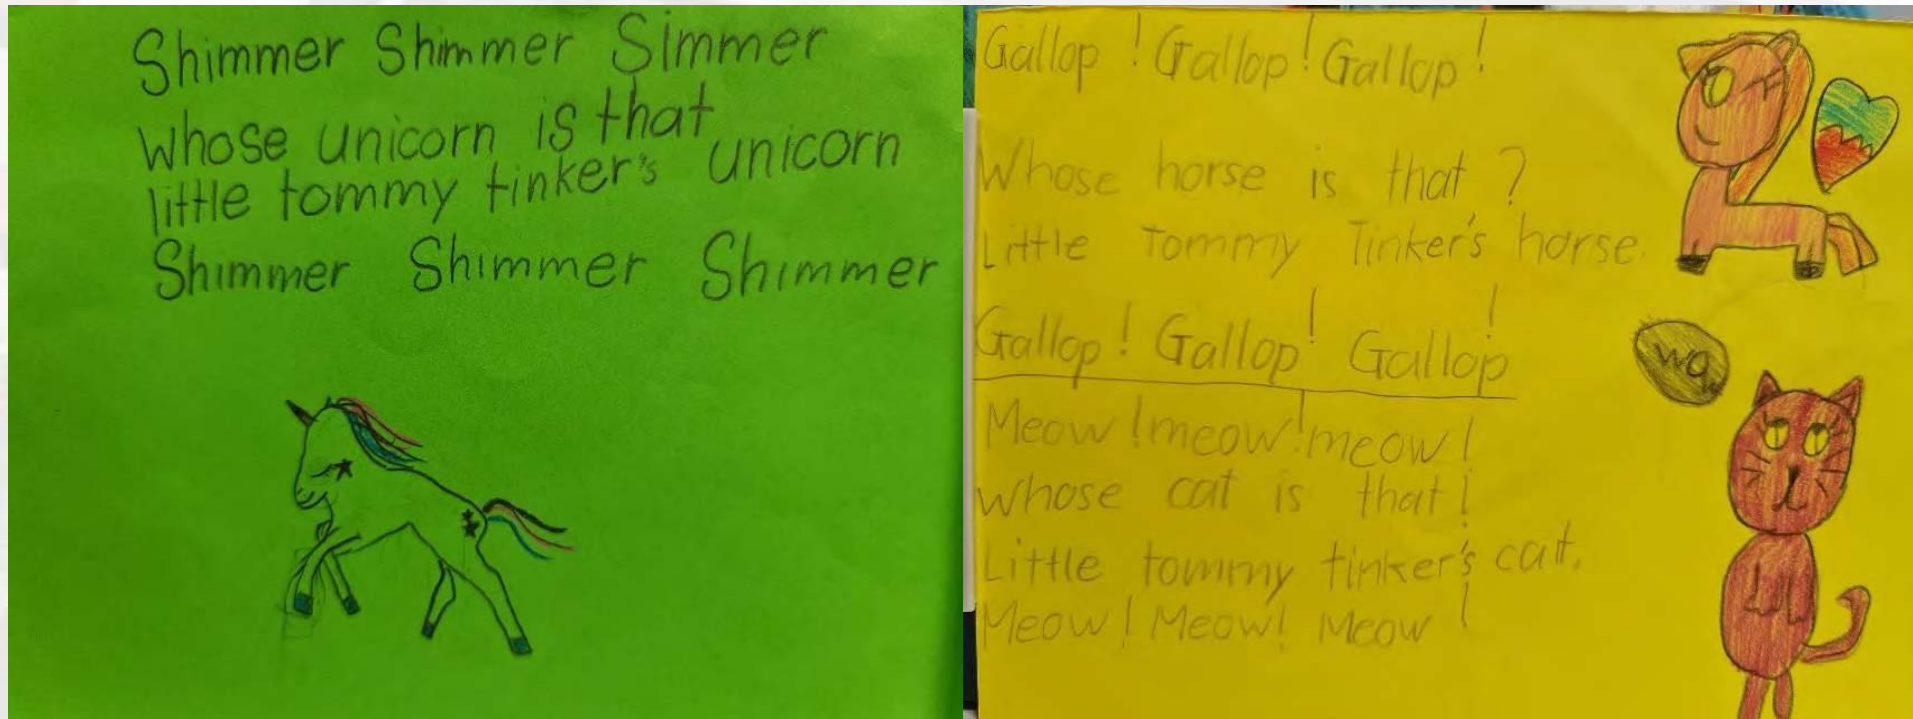 Shimmer Shimmer Simmer
whose unicorn is that
little tommy tinker's unicorn
Shimmer Shimmer Shimmer
Gallop! Gallop! Gallop!
Whose horse is that?
Little Tommy Tinker's horse.
Gallop! Gallop! Gallop!
Meow! meow! meow!
whose cat is that!
Little tommy tinker's cat.
Meow! Meow! Meow!